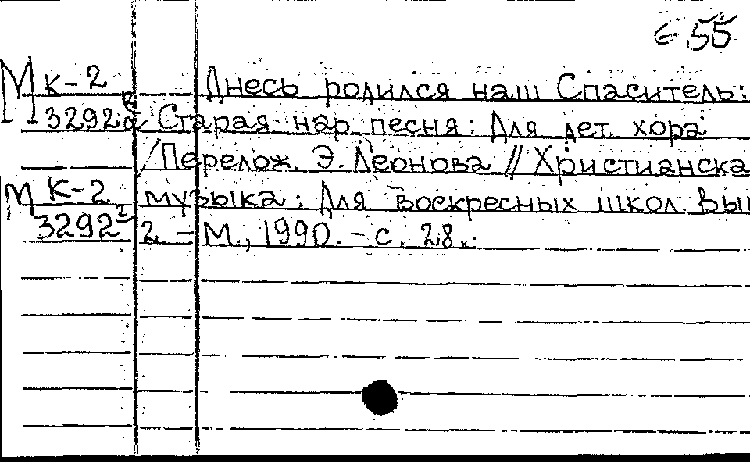 6 55
М К-2 Днесь родился наш Спаситель:
3292 Старая нар. песня: Для дет. хора
/Перелож. Э. Леонова // Христианска
М К-2 музыка: Для воскресных школ. Вы
3292² 2. - М., 1990. - с. 28.